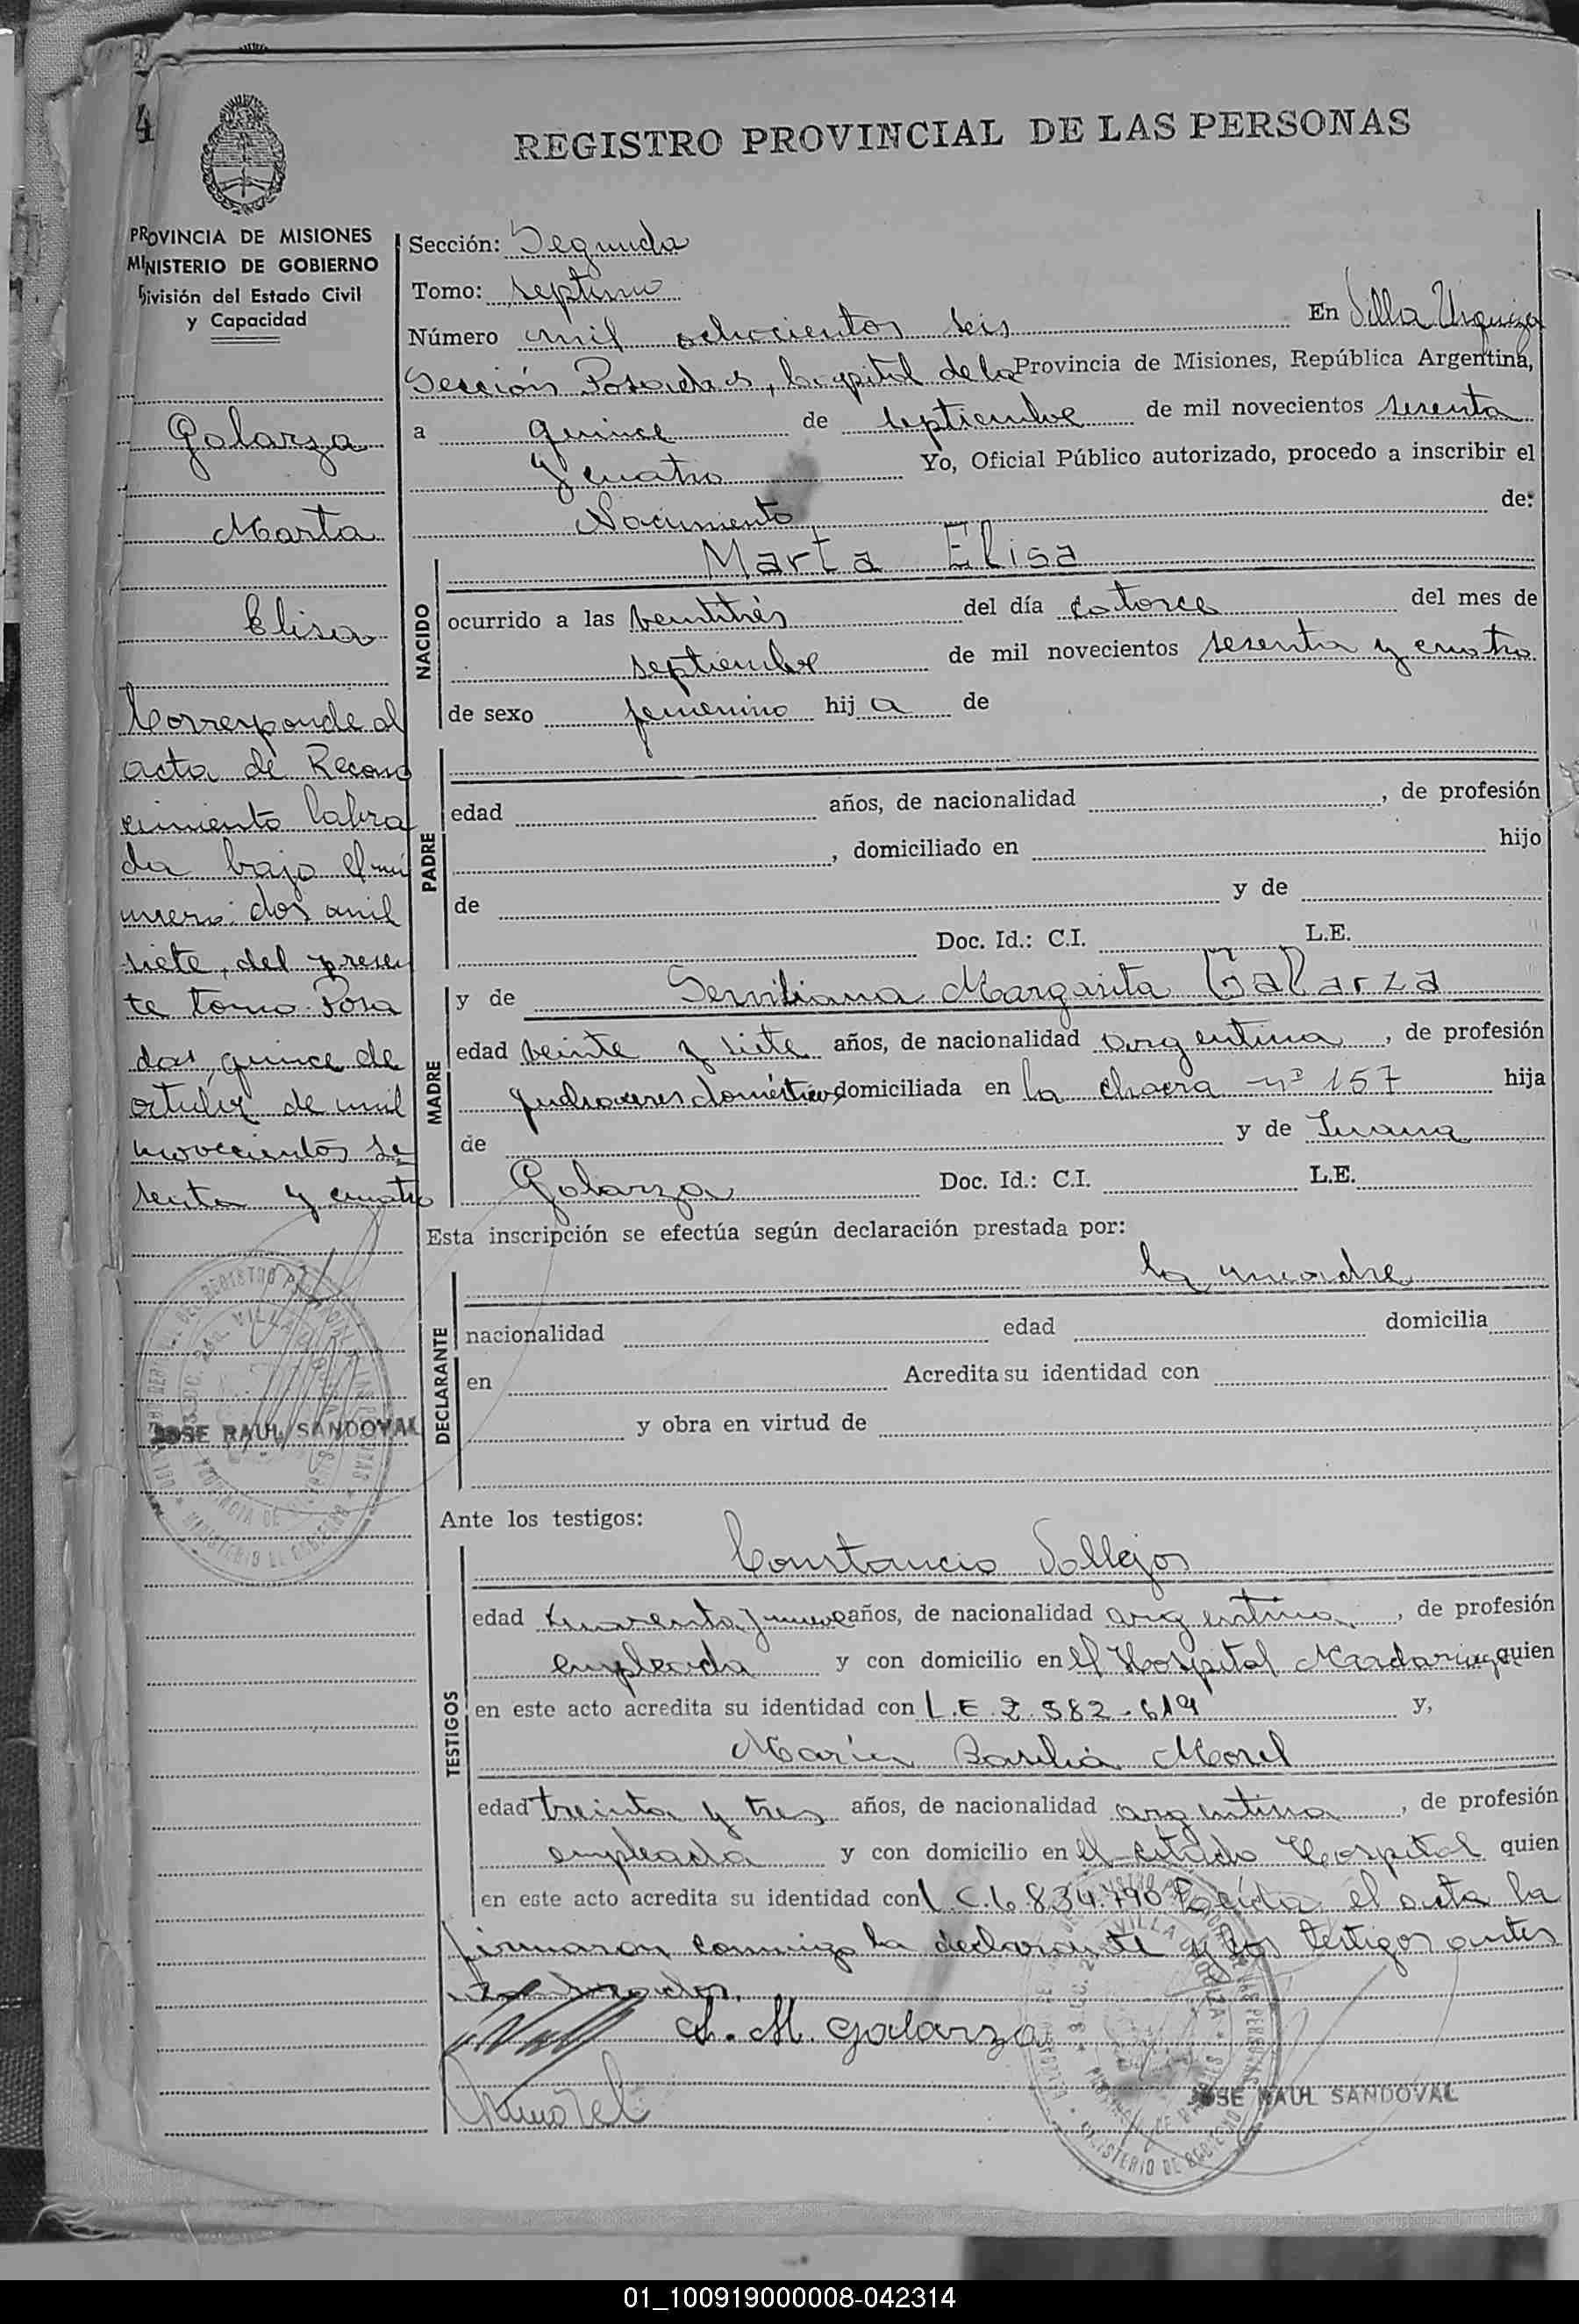 4
REGISTRO PROVINCIAL DE LAS PERSONAS
PROVINCIA DE MISIONES
MINISTERIO DE GOBIERNO
División del Estado Civil
y Capacidad
Galarza
Marta
Elisa
Corresponde al
acta de Recono
cimiento labra
da bajo el nú
mero: dos mil
siete, del presen
te tomo. Posa
das, quince de
octubre de mil
novecientos se
senta y cuatro
JOSE RAUL SANDOVAL
Sección: Segunda
Tomo: septimo
Número mil ochocientos seis En Villa Urquiza
Sección Posadas, Capital de la Provincia de Misiones, República Argentina,
a quince de septiembre de mil novecientos sesenta
y cuatro Yo, Oficial Público autorizado, procedo a inscribir el
Nacimiento de:
NACIDO
Marta Elisa
ocurrido a las veintitrés del día catorce del mes de
septiembre de mil novecientos sesenta y cuatro
de sexo femenino hij a de
PADRE
edad años, de nacionalidad , de profesión
, domiciliado en hijo
de y de
Doc. Id.: C.I. L.E.
MADRE
y de Serviliana Margarita Galarza
edad veinte y siete años, de nacionalidad argentina , de profesión
quehaceres domésticos domiciliada en la chacra nº 157 hija
de y de Juana
Galarza Doc. Id.: C.I. L.E.
Esta inscripción se efectúa según declaración prestada por:
DECLARANTE
la madre
nacionalidad edad domicilia
en Acredita su identidad con
y obra en virtud de
Ante los testigos:
TESTIGOS
Constancio Vallejos
edad cuarenta y nueve años, de nacionalidad argentina , de profesión
empleada y con domicilio en el Hospital Madariaga quien
en este acto acredita su identidad con L.E. 2.582.619 y,
María Basilia Morel
edad treinta y tres años, de nacionalidad argentina , de profesión
empleada y con domicilio en el citado Hospital quien
en este acto acredita su identidad con L.C. 6.834.790 Leída el acta la
firmaron conmigo la declarante y los testigos antes
nombrados.
S. M. Galarza
JOSE RAUL SANDOVAL
01_100919000008-042314